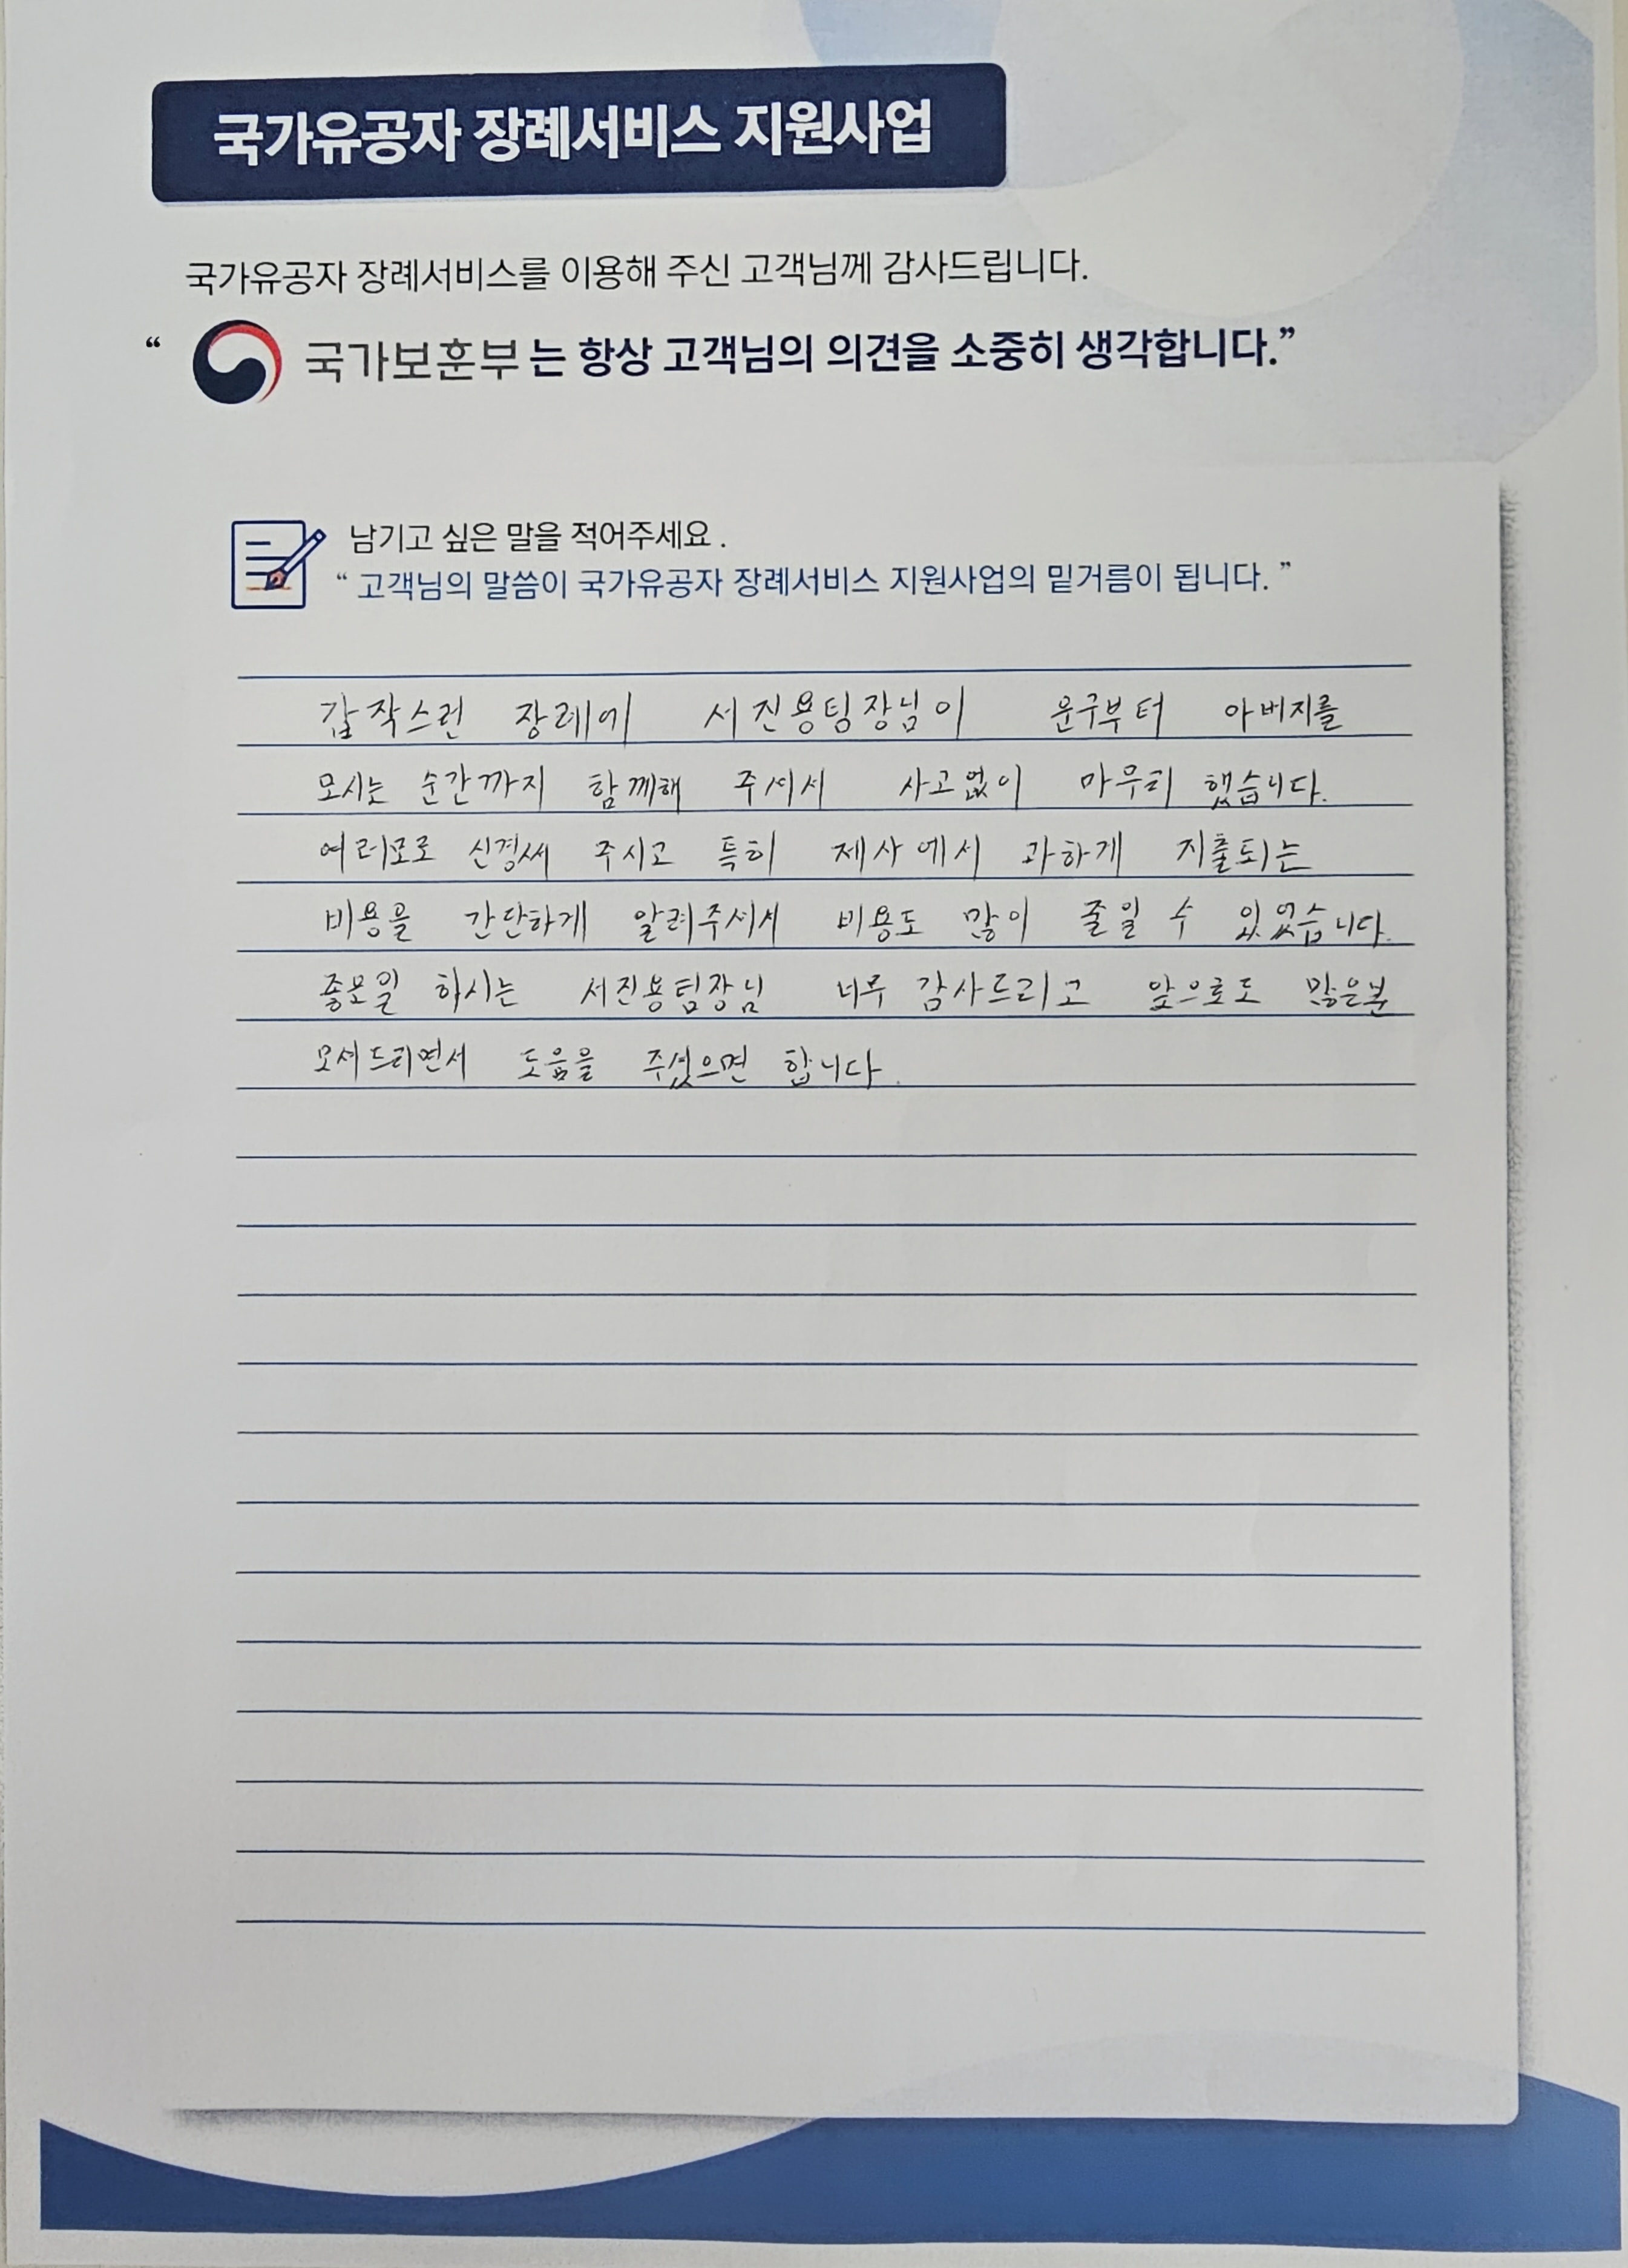 국가유공자 장례서비스 지원사업
국가유공자 장례서비스를 이용해 주신 고객님께 감사드립니다.
“ 국가보훈부는 항상 고객님의 의견을 소중히 생각합니다.”
남기고 싶은 말을 적어주세요 .
“ 고객님의 말씀이 국가유공자 장례서비스 지원사업의 밑거름이 됩니다. ”
갑작스런 장례에 서진용팀장님이 운구부터 아버지를
모시는 순간까지 함께해 주셔서 사고없이 마무리 했습니다.
여러모로 신경써 주시고 특히 제사에서 과하게 지출되는
비용을 간단하게 알려주셔서 비용도 많이 줄일 수 있었습니다.
좋은일 하시는 서진용팀장님 너무 감사드리고 앞으로도 많은분
모셔드리면서 도움을 주셨으면 합니다.